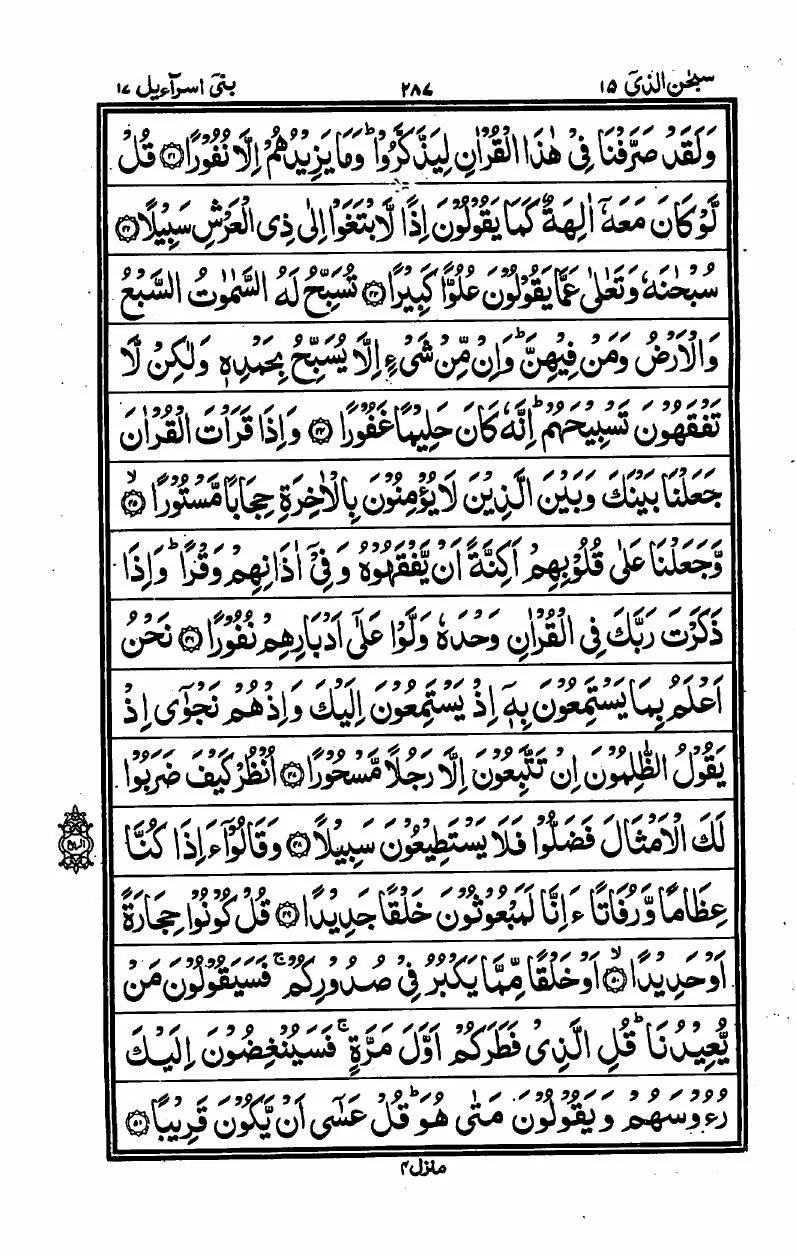 سبحٰن الذیٓ ۱۵
۲۸۷
بنیٓ اسرآءیل ۱۷
وَلَقَدْ صَرَّفْنَا فِیْ هٰذَا الْقُرْاٰنِ لِیَذَّكَّرُوْا ؕ وَمَا یَزِیْدُهُمْ اِلَّا نُفُوْرًا ۝۴۱ قُلْ
لَّوْ كَانَ مَعَهٗۤ اٰلِهَةٌ كَمَا یَقُوْلُوْنَ اِذًا لَّابْتَغَوْا اِلٰی ذِی الْعَرْشِ سَبِیْلًا ۝۴۲
سُبْحٰنَهٗ وَتَعٰلٰی عَمَّا یَقُوْلُوْنَ عُلُوًّا كَبِیْرًا ۝۴۳ تُسَبِّحُ لَهُ السَّمٰوٰتُ السَّبْعُ
وَالْاَرْضُ وَمَنْ فِیْهِنَّ ؕ وَاِنْ مِّنْ شَیْءٍ اِلَّا یُسَبِّحُ بِحَمْدِهٖ وَلٰكِنْ لَّا
تَفْقَهُوْنَ تَسْبِیْحَهُمْ ؕ اِنَّهٗ كَانَ حَلِیْمًا غَفُوْرًا ۝۴۴ وَاِذَا قَرَاْتَ الْقُرْاٰنَ
جَعَلْنَا بَیْنَكَ وَبَیْنَ الَّذِیْنَ لَا یُؤْمِنُوْنَ بِالْاٰخِرَةِ حِجَابًا مَّسْتُوْرًا ۝۴۵ ۙ
وَّجَعَلْنَا عَلٰی قُلُوْبِهِمْ اَكِنَّةً اَنْ یَّفْقَهُوْهُ وَفِیْۤ اٰذَانِهِمْ وَقْرًا ؕ وَاِذَا
ذَكَرْتَ رَبَّكَ فِی الْقُرْاٰنِ وَحْدَهٗ وَلَّوْا عَلٰۤی اَدْبَارِهِمْ نُفُوْرًا ۝۴۶ نَحْنُ
اَعْلَمُ بِمَا یَسْتَمِعُوْنَ بِهٖۤ اِذْ یَسْتَمِعُوْنَ اِلَیْكَ وَاِذْ هُمْ نَجْوٰۤی اِذْ
یَقُوْلُ الظّٰلِمُوْنَ اِنْ تَتَّبِعُوْنَ اِلَّا رَجُلًا مَّسْحُوْرًا ۝۴۷ اُنْظُرْ كَیْفَ ضَرَبُوْا
لَكَ الْاَمْثَالَ فَضَلُّوْا فَلَا یَسْتَطِیْعُوْنَ سَبِیْلًا ۝۴۸ وَقَالُوْۤا ءَاِذَا كُنَّا
عِظَامًا وَّرُفَاتًا ءَاِنَّا لَمَبْعُوْثُوْنَ خَلْقًا جَدِیْدًا ۝۴۹ قُلْ كُوْنُوْا حِجَارَةً
اَوْ حَدِیْدًا ۝۵۰ ۙ اَوْ خَلْقًا مِّمَّا یَكْبُرُ فِیْ صُدُوْرِكُمْ ۚ فَسَیَقُوْلُوْنَ مَنْ
یُّعِیْدُنَا ؕ قُلِ الَّذِیْ فَطَرَكُمْ اَوَّلَ مَرَّةٍ ۚ فَسَیُنْغِضُوْنَ اِلَیْكَ
رُءُوْسَهُمْ وَیَقُوْلُوْنَ مَتٰی هُوَ ؕ قُلْ عَسٰۤی اَنْ یَّكُوْنَ قَرِیْبًا ۝۵۱
منزل ۴